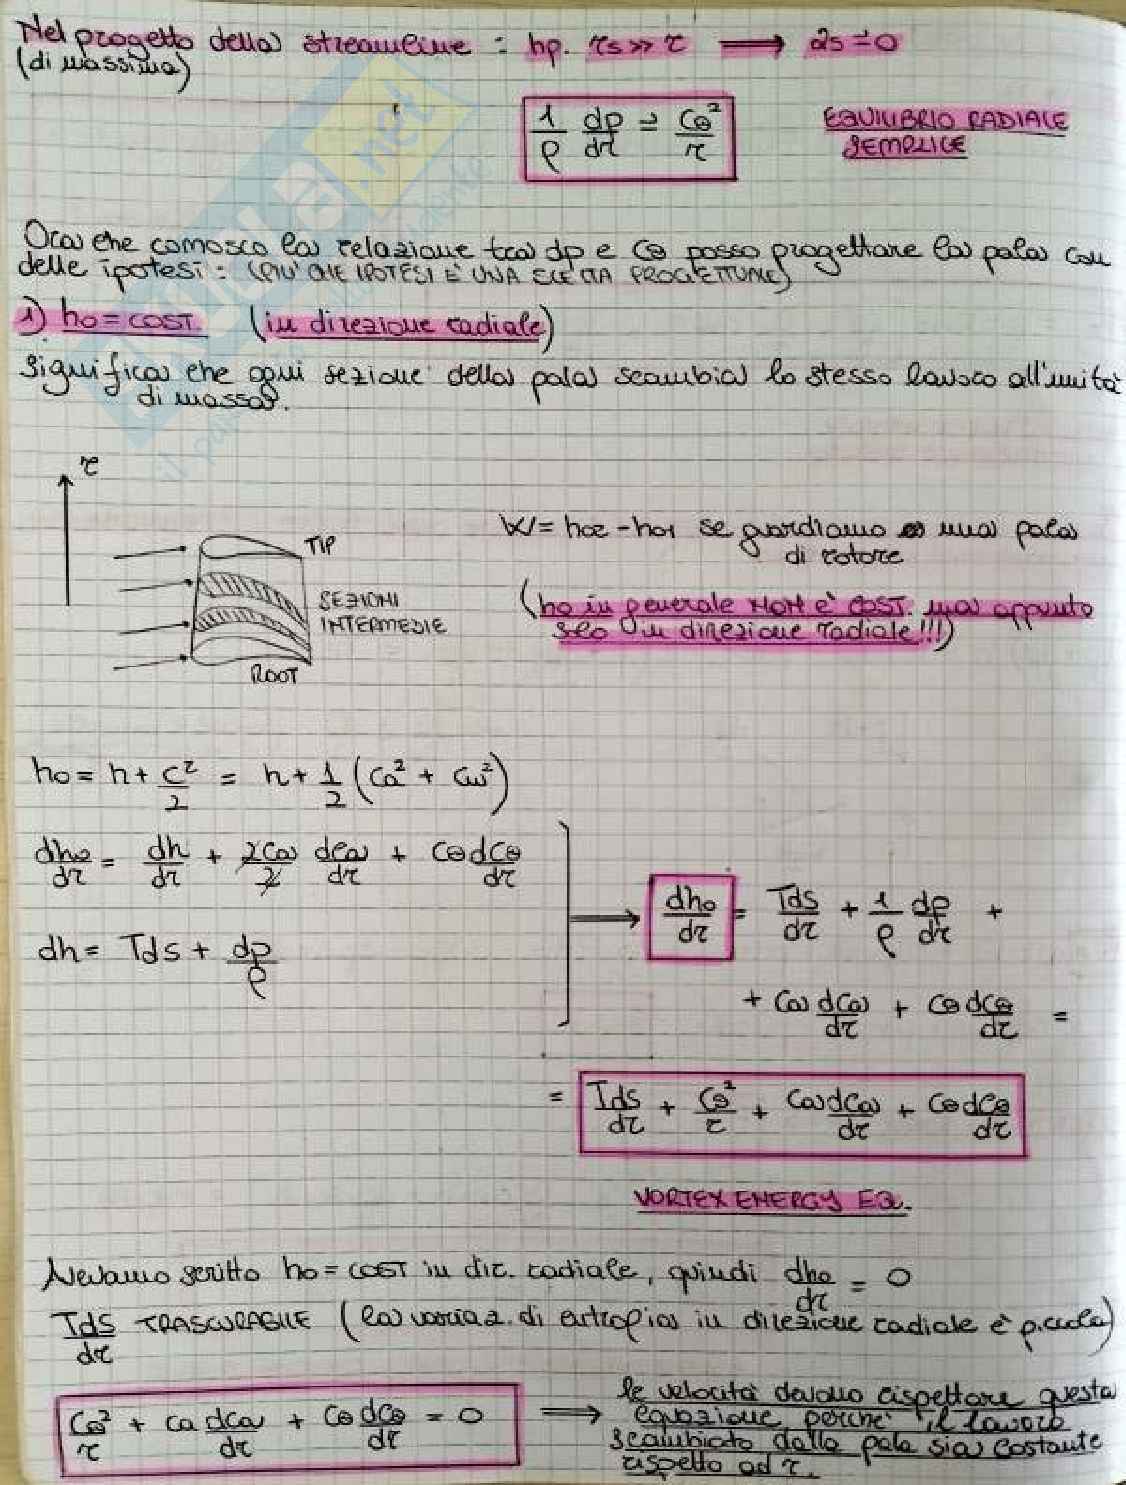 Nel progetto della streamline : hp. rs >> r ⟶ as ≐ 0
(di massima)
1/ρ dp/dr = Cθ²/r
EQUILIBRIO RADIALE
SEMPLICE
Ora che conosco la relazione tra dp e Cθ posso progettare la pala con
delle ipotesi : (PIU' CHE IPOTESI E' UNA SCELTA PROGETTUALE)
1) ho = COST. (in direzione radiale)
Significa che ogni sezione della pala scambia lo stesso lavoro all'unità
di massa.
r
TIP
SEZIONI
INTERMEDIE
ROOT
W = ho2 - ho1 se guardiamo una pala
di rotore
(ho in generale NON è COST. ma appunto
solo in direzione radiale!!!)
ho = h + C²/2 = h + 1/2 (Ca² + Cw²)
dho/dr = dh/dr + 2Ca/2 dCa/dr + Cθ dCθ/dr
dh = Tds + dp/ρ
⟶ dho/dr = Tds/dr + 1/ρ dp/dr +
+ Ca dCa/dr + Cθ dCθ/dr =
= Tds/dr + Cθ²/r + Ca dCa/dr + Cθ dCθ/dr
VORTEX ENERGY EQ.
Avevamo scritto ho = COST in dir. radiale, quindi dho/dr = 0
Tds/dr TRASCURABILE (la variaz. di entropia in direzione radiale è piccola)
Cθ²/r + Ca dCa/dr + Cθ dCθ/dr = 0 ⟹
le velocità devono rispettare questa
equazione perché il lavoro
scambiato dalla pala sia costante
rispetto ad r.